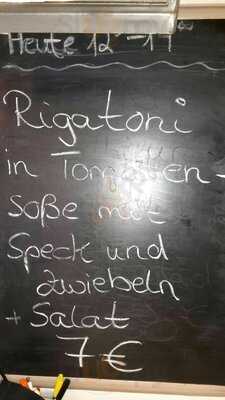 Heute 12°° - 14°°
Rigatoni
in Tomaten-
soße mit
Speck und
zwiebeln
+ Salat
7 €